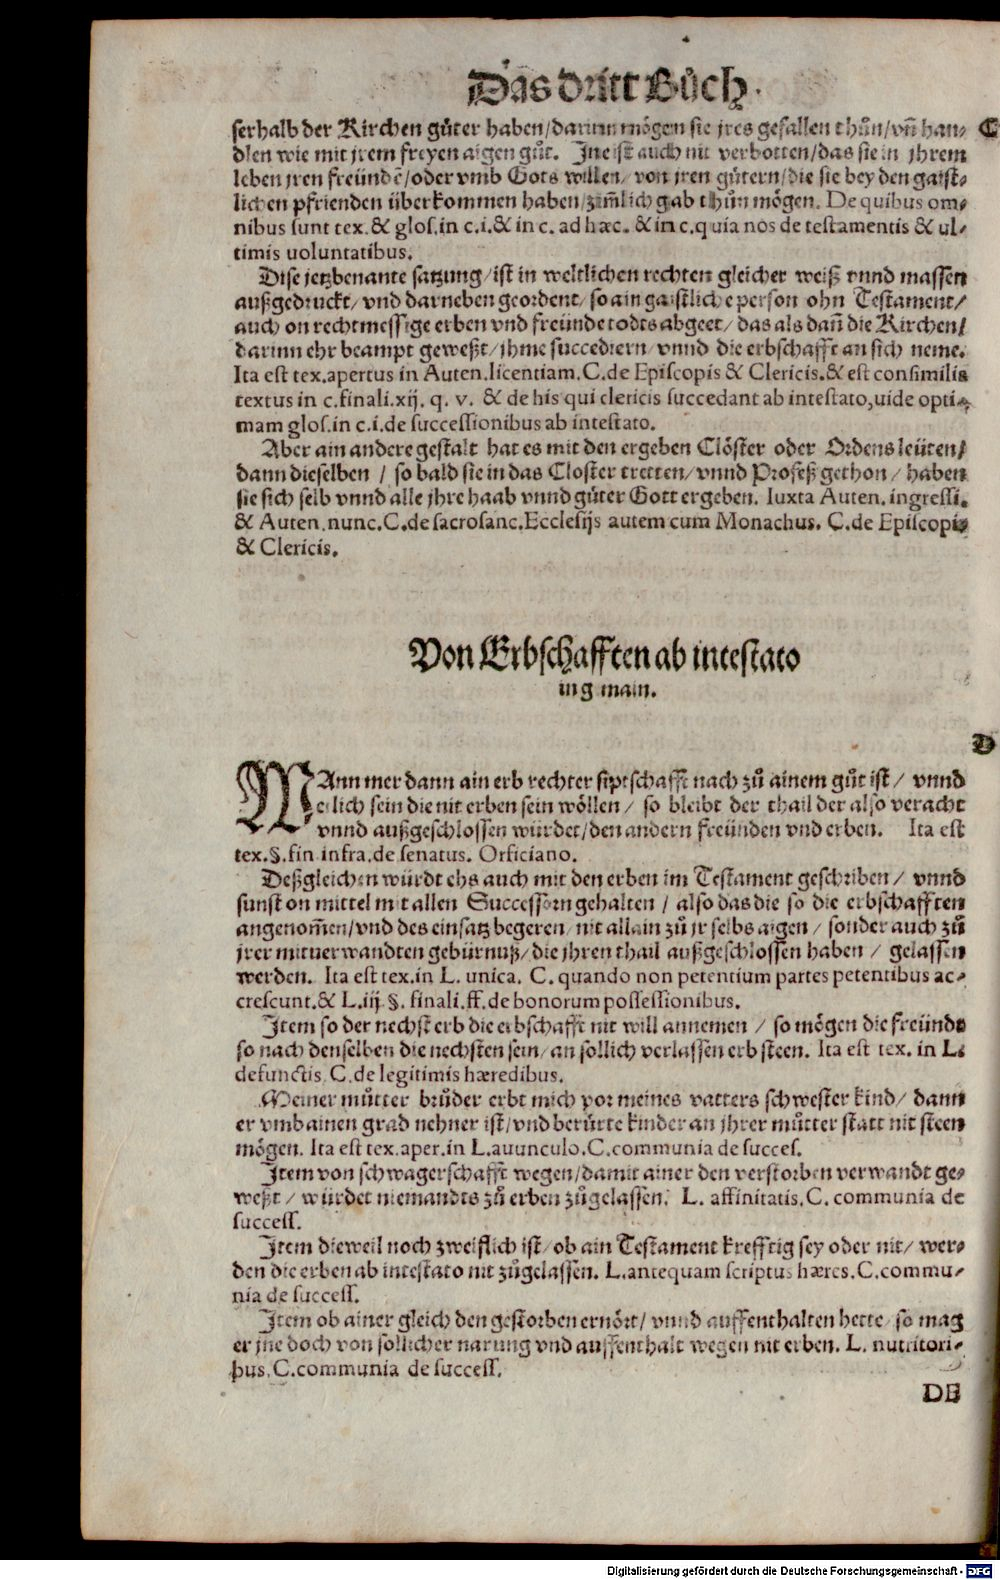 Das dritt Bůch.
serhalb der Kirchen gůter haben/darinn mögen sie jres gefallen thůn/vñ han- C
dlen wie mit jrem freyen aigen gůt. Jne ist auch nit verbotten/das sie in jhrem
leben jren freündẽ/oder vmb Gots willen/von jren gůtern/die sie bey den gaist-
lichen pfrienden überkommen haben/zim̃lich gab thůn mögen. De quibus om-
nibus sunt tex. & glos. in c. i. & in c. ad hæc. & in c. quia nos de testamentis & ul-
timis uoluntatibus.
Dise jetzbenante satzung/ist in weltlichen rechten gleicher weiß vnnd massen
außgedruckt/vnd darneben geordent/so ain gaistliche person ohn Testament/
auch on rechtmessige erben vnd freünde todts abgeet/das als dañ die Kirchen/
darinn ehr beampt geweßt/jhme succediern/vnnd die erbschafft an sich neme.
Ita est tex. apertus in Auten. licentiam. C. de Episcopis & Clericis. & est consimilis
textus in c. finali. xij. q. v. & de his qui clericis succedant ab intestato, uide opti-
mam glos. in c. i. de successionibus ab intestato.
Aber ain andere gestalt hat es mit den ergeben Clöster oder Ordensleüten/
dann dieselben / so bald sie in das Closter tretten/vnnd Profeß gethon/haben
sie sich selb vnnd alle jhre haab vnnd gůter Gott ergeben. Iuxta Auten. ingressi.
& Auten. nunc. C. de sacrosanc. Ecclesijs autem cum Monachus. C. de Episcopis
& Clericis.
Von Erbschafften ab intestato
in g main.
D
WAnn mer dann ain erb rechter siptschafft nach zů ainem gůt ist/ vnnd
etlich sein die nit erben sein wöllen/ so bleibt der thail der also veracht
vnnd außgeschlossen würdet/den andern freünden vnd erben. Ita est
tex. §. fin infra. de senatus. Orficiano.
Deßgleichen würdt ehs auch mit den erben im Testament geschriben/ vnnd
sunst on mittel mit allen Successorn gehalten/ also das die so die erbschafften
angenom̃en/vnd des einsatz begeren/nit allain zů jr selbs aigen/ sonder auch zů
jrer mituerwandten gebürnuß/die jhren thail außgeschlossen haben/ gelassen
werden. Ita est tex. in L. unica. C. quando non petentium partes petentibus ac-
crescunt. & L. iij. §. finali. ff. de bonorum possessionibus.
Jtem so der nechst erb die erbschafft nit will annemen/ so mögen die freünde
so nach denselben die nechsten sein/an sollich verlassen erb steen. Ita est tex. in L.
defunctis. C. de legitimis hæredibus.
Meiner můtter brůder erbt mich vor meines vatters schwester kind/ dann
er vmb ainen grad nehner ist/vnd berürte kinder an jhrer můtter statt nit steen
mögen. Ita est tex. aper. in L. auunculo. C. communia de succes.
Jtem von schwagerschafft wegen/damit ainer den verstorben verwandt ge-
weßt/ würdet niemandts zů erben zůgelassen. L. affinitatis. C. communia de
success.
Jtem dieweil noch zweiflich ist/ob ain Testament krefftig sey oder nit/ wer-
den die erben ab intestato nit zůgelassen. L. antequam scriptus hæres. C. commu-
nia de success.
Jtem ob ainer gleich den gestorben ernört/ vnnd auffenthalten hette/so mag
er jne doch von sollicher narung vnd auffenthalt wegen nit erben. L. nutritori-
bus. C. communia de success.
DE
Digitalisierung gefördert durch die Deutsche Forschungsgemeinschaft - DFG